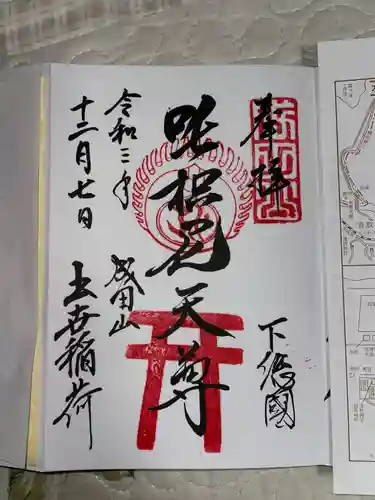 奉拝
下総國
吒枳尼天尊
成田山
出世稲荷
令和三年
十二月七日